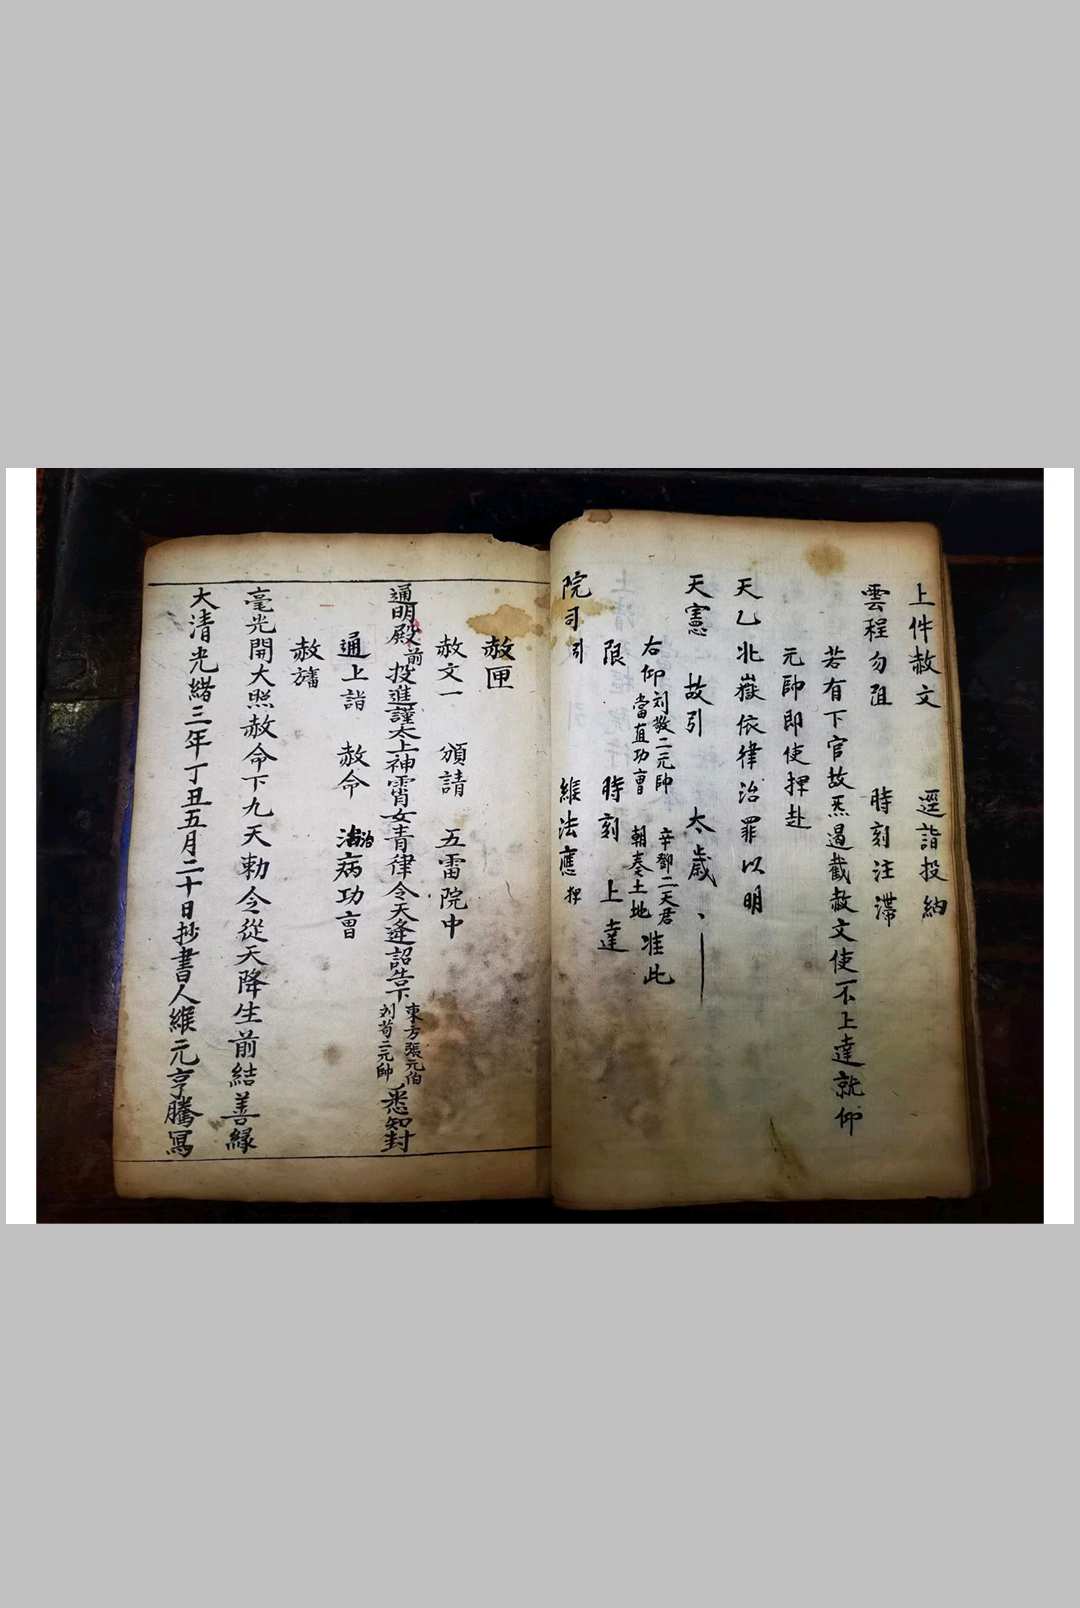 上件赦文 逕詣投納
雲程勿阻 時刻注滯
若有下官故炁遏截赦文使不上達就仰
元帥即使押赴
天乙北嶽依律治罪以明
天憲 故引 太歲
右仰刘敬二元帥 辛鄧二天君
當直功曹 朝奏土地 准此
限 時刻 上達
院司引 維法應押
赦匣
赦文一 頒請 五雷院中
通明殿前投進謹太上神霄女青律令天逢詔告下東方張元伯刘苟二元帥悉知封
通上詣 赦命 治病功曹
赦旛
毫光開大照赦命下九天勅令從天降生前結善緣
大清光緒三年丁丑五月二十日抄書人維元亨騰寫